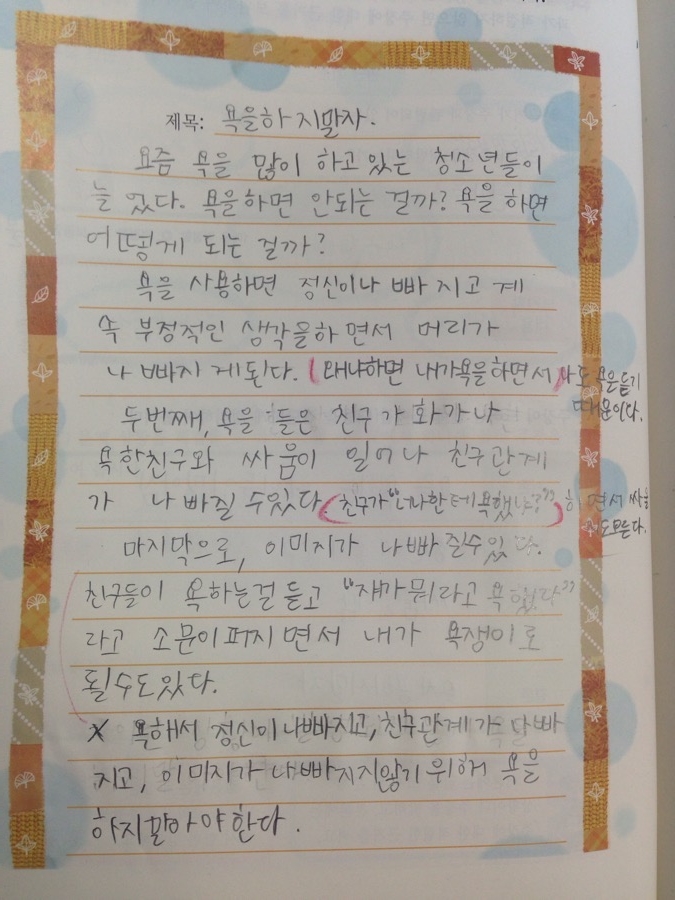 제목: 욕을하지말자.
요즘 욕을 많이 하고있는 청소년들이
늘었다. 욕을하면 안되는 걸까? 욕을 하면
어떻게 되는 걸까?
욕을 사용하면 정신이나빠지고 계
속 부정적인 생각을하면서 머리가
나빠지게된다. (왜냐하면 내가욕을하면서 나도 욕을듣기
때문이다.
두번째, 욕을 들은 친구가 화가나
욕한친구와 싸움이 일어나 친구관계
가 나빠질 수있다. (친구가 "너나한테욕했냐?")하면서 싸울
도모른다.
마지막으로, 이미지가 나빠질수있다.
친구들이 욕하는걸 듣고 "쟤가뭐라고 욕했다"
라고 소문이퍼지면서 내가 욕쟁이로
될수도있다.
X 욕해서 정신이나빠지고, 친구관계가
지고, 이미지가 나빠지지않기 위해 욕을
하지말아야한다.